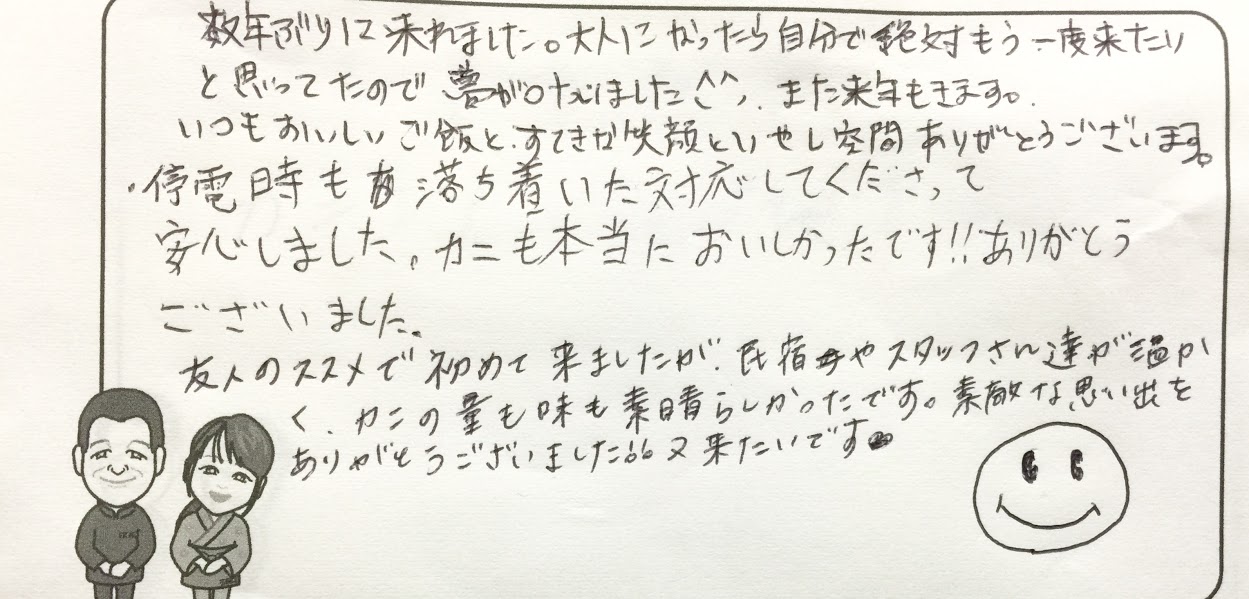 数年ぶりに来れました。大人になったら自分で絶対もう一度来たい
と思ってたので夢がかないました^^、また来年もきます。
いつもおいしいご飯と、すてきな笑顔といやし空間ありがとうございます。
・停電時も落ち着いた対応してくださって
安心しました。カニも本当においしかったです!!ありがとう
ございました。
友人のススメで初めて来ましたが、民宿やスタッフさん達が温か
く、カニの量も味も素晴らしかったです。素敵な思い出を
ありがとうございました。又来たいです